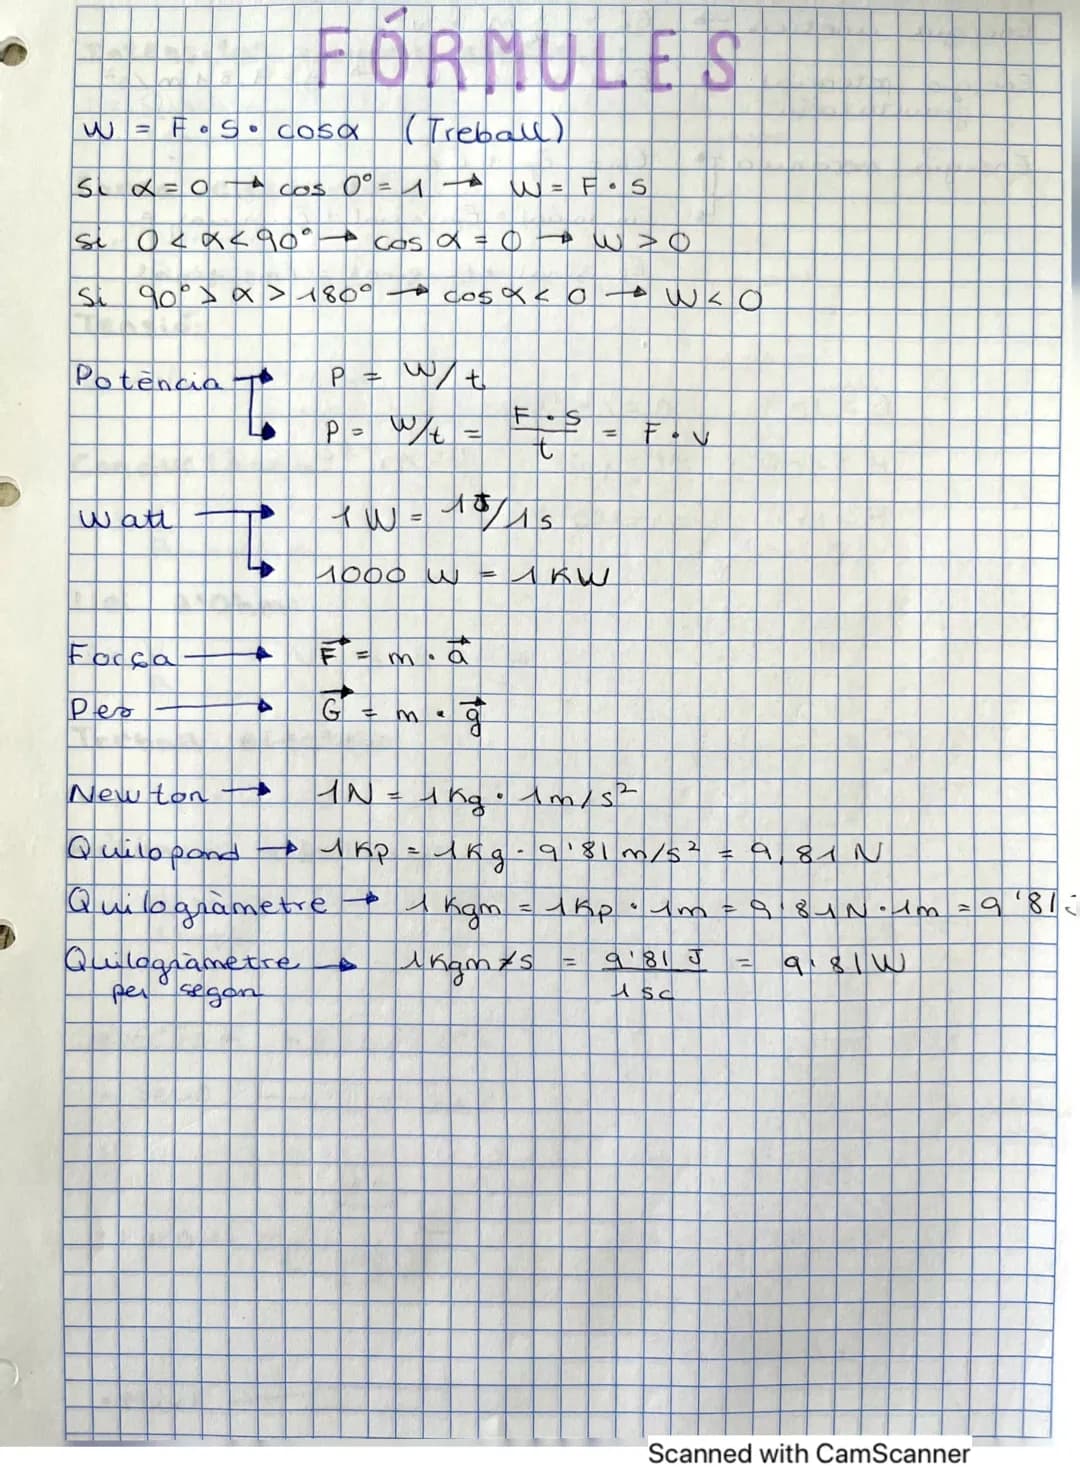 FÓRMULES
W = F • S • cosα (Treball)
Si α = 0 → cos 0° = 1 → W = F • S
Si 0 < α < 90° → cos α = 0 → W > 0
Si 90° > α > 180° → cos α < 0 → W < 0
Potència → P = W/t
P = W/t = F • S / t = F • v
Watt → 1 W = 1J/1s
1000 W = 1 KW
Força → F⃗ = m • a⃗
Pes → G⃗ = m • g⃗
Newton → 1N = 1Kg • 1m/s²
Quilopond → 1 Kp = 1Kg • 9'81 m/s² = 9,81 N
Quilogràmetre → 1 Kgm = 1Kp • 1m = 9'81N • 1m = 9'81J
Quilogràmetre per segon → 1Kgm/s = 9'81 J / 1 sc = 9'81W
Scanned with CamScanner